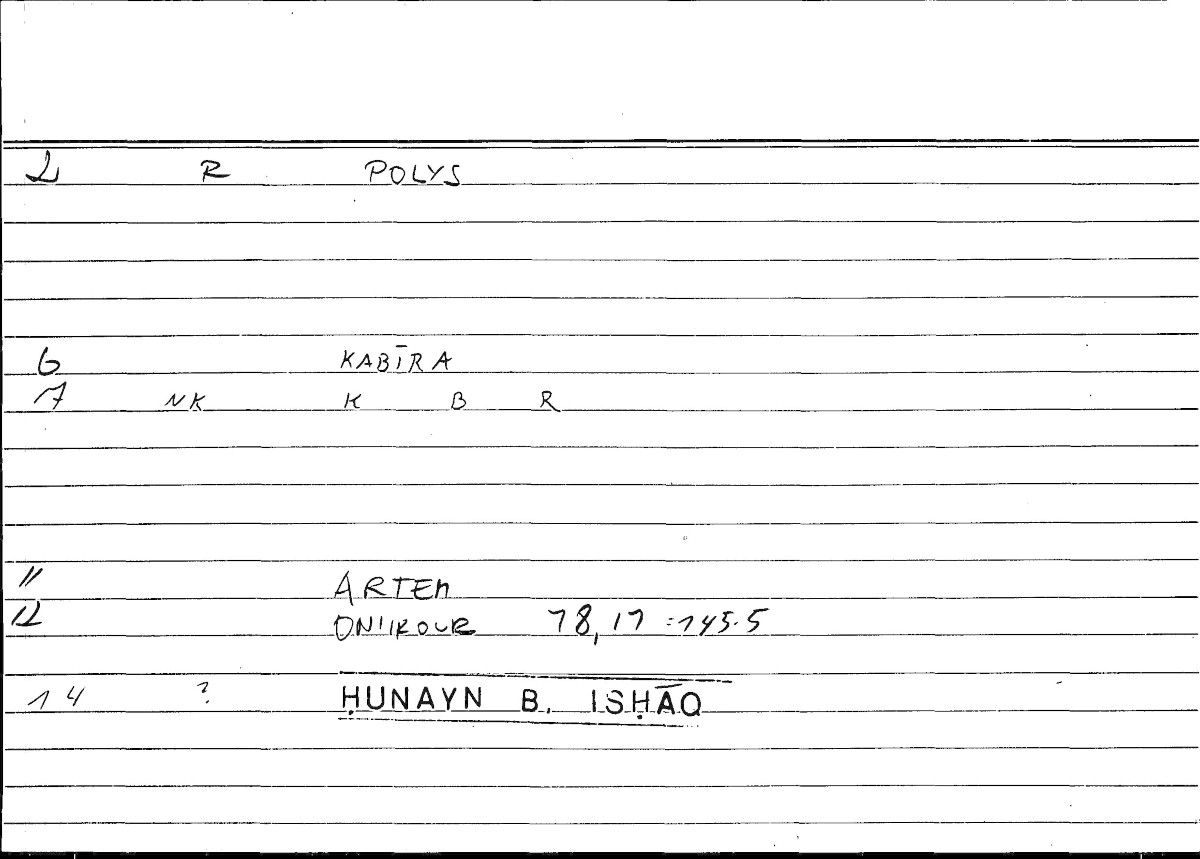 2 R POLYS
6 KABĪRA
7 NK K B R
11 ARTEM
12 78,17 :145.5
14 ? ḤUNAYN B. ISḤĀQ